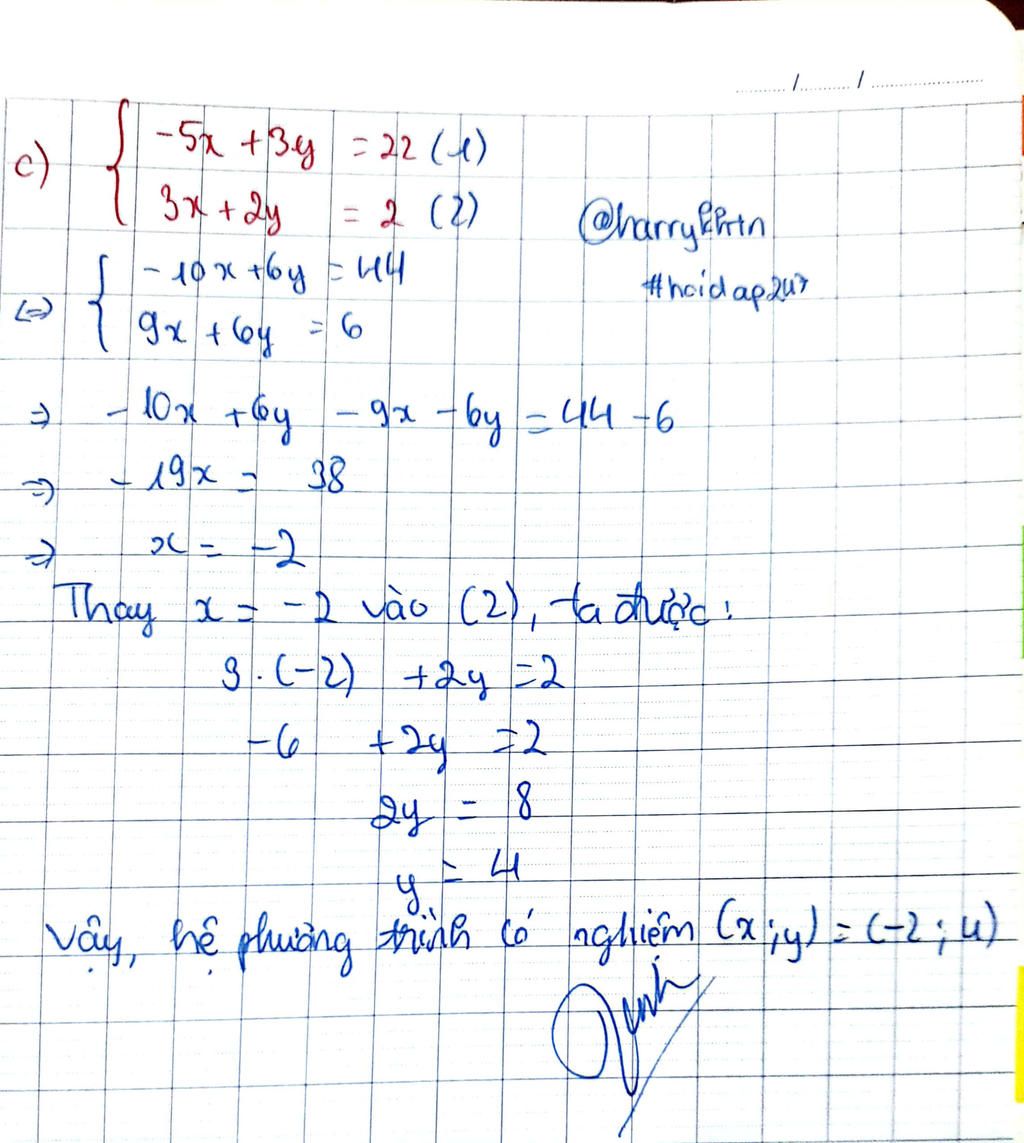 c) { -5x + 3y = 22 (1)
3x + 2y = 2 (2)
@harry
#hoidap247
<=> { -10x + 6y = 44
9x + 6y = 6
=> -10x + 6y - 9x - 6y = 44 - 6
=> -19x = 38
=> x = -2
Thay x = -2 vào (2), ta được:
3.(-2) + 2y = 2
-6 + 2y = 2
2y = 8
y = 4
Vậy, hệ phường trình có nghiệm (x;y) = (-2; 4)